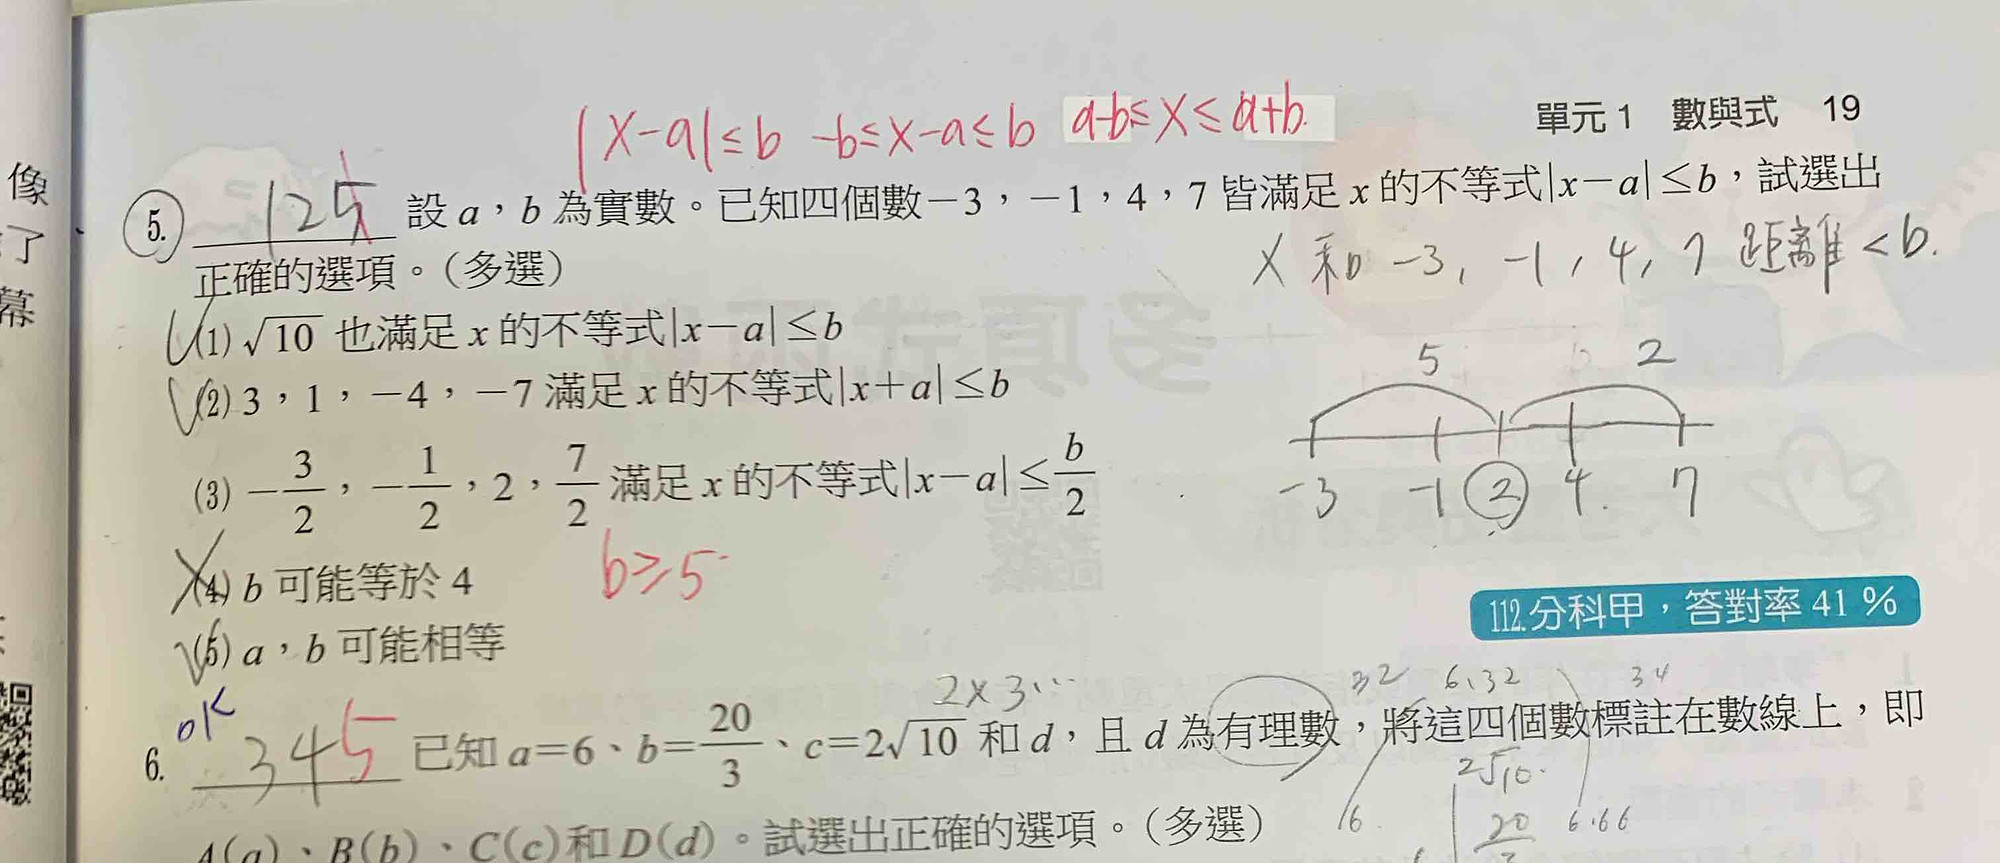 單元 1 數與式 19
|x-a|≤b -b≤x-a≤b a-b≤x≤a+b.
像
了
幕
5. 125 設 a，b 為實數。已知四個數－3，－1，4，7 皆滿足 x 的不等式|x－a|≤b，試選出
正確的選項。（多選）
x 和 -3, -1, 4, 7 距離<b.
(1) √10 也滿足 x 的不等式|x－a|≤b
(2) 3，1，－4，－7 滿足 x 的不等式|x＋a|≤b
(3) －3/2，－1/2，2，7/2 滿足 x 的不等式|x－a|≤b/2
5 2
-3 -1 2 4. 7
(4) b 可能等於 4
b≥5
(5) a，b 可能相等
112.分科甲，答對率 41 %
2×3… 32 6.32 34
ok
6. 345 已知 a＝6、b＝20/3、c＝2√10 和 d，且 d 為有理數，將這四個數標註在數線上，即
2√10.
6. 20 6.66
A(a)、B(b)、C(c)和 D(d)。試選出正確的選項。（多選）